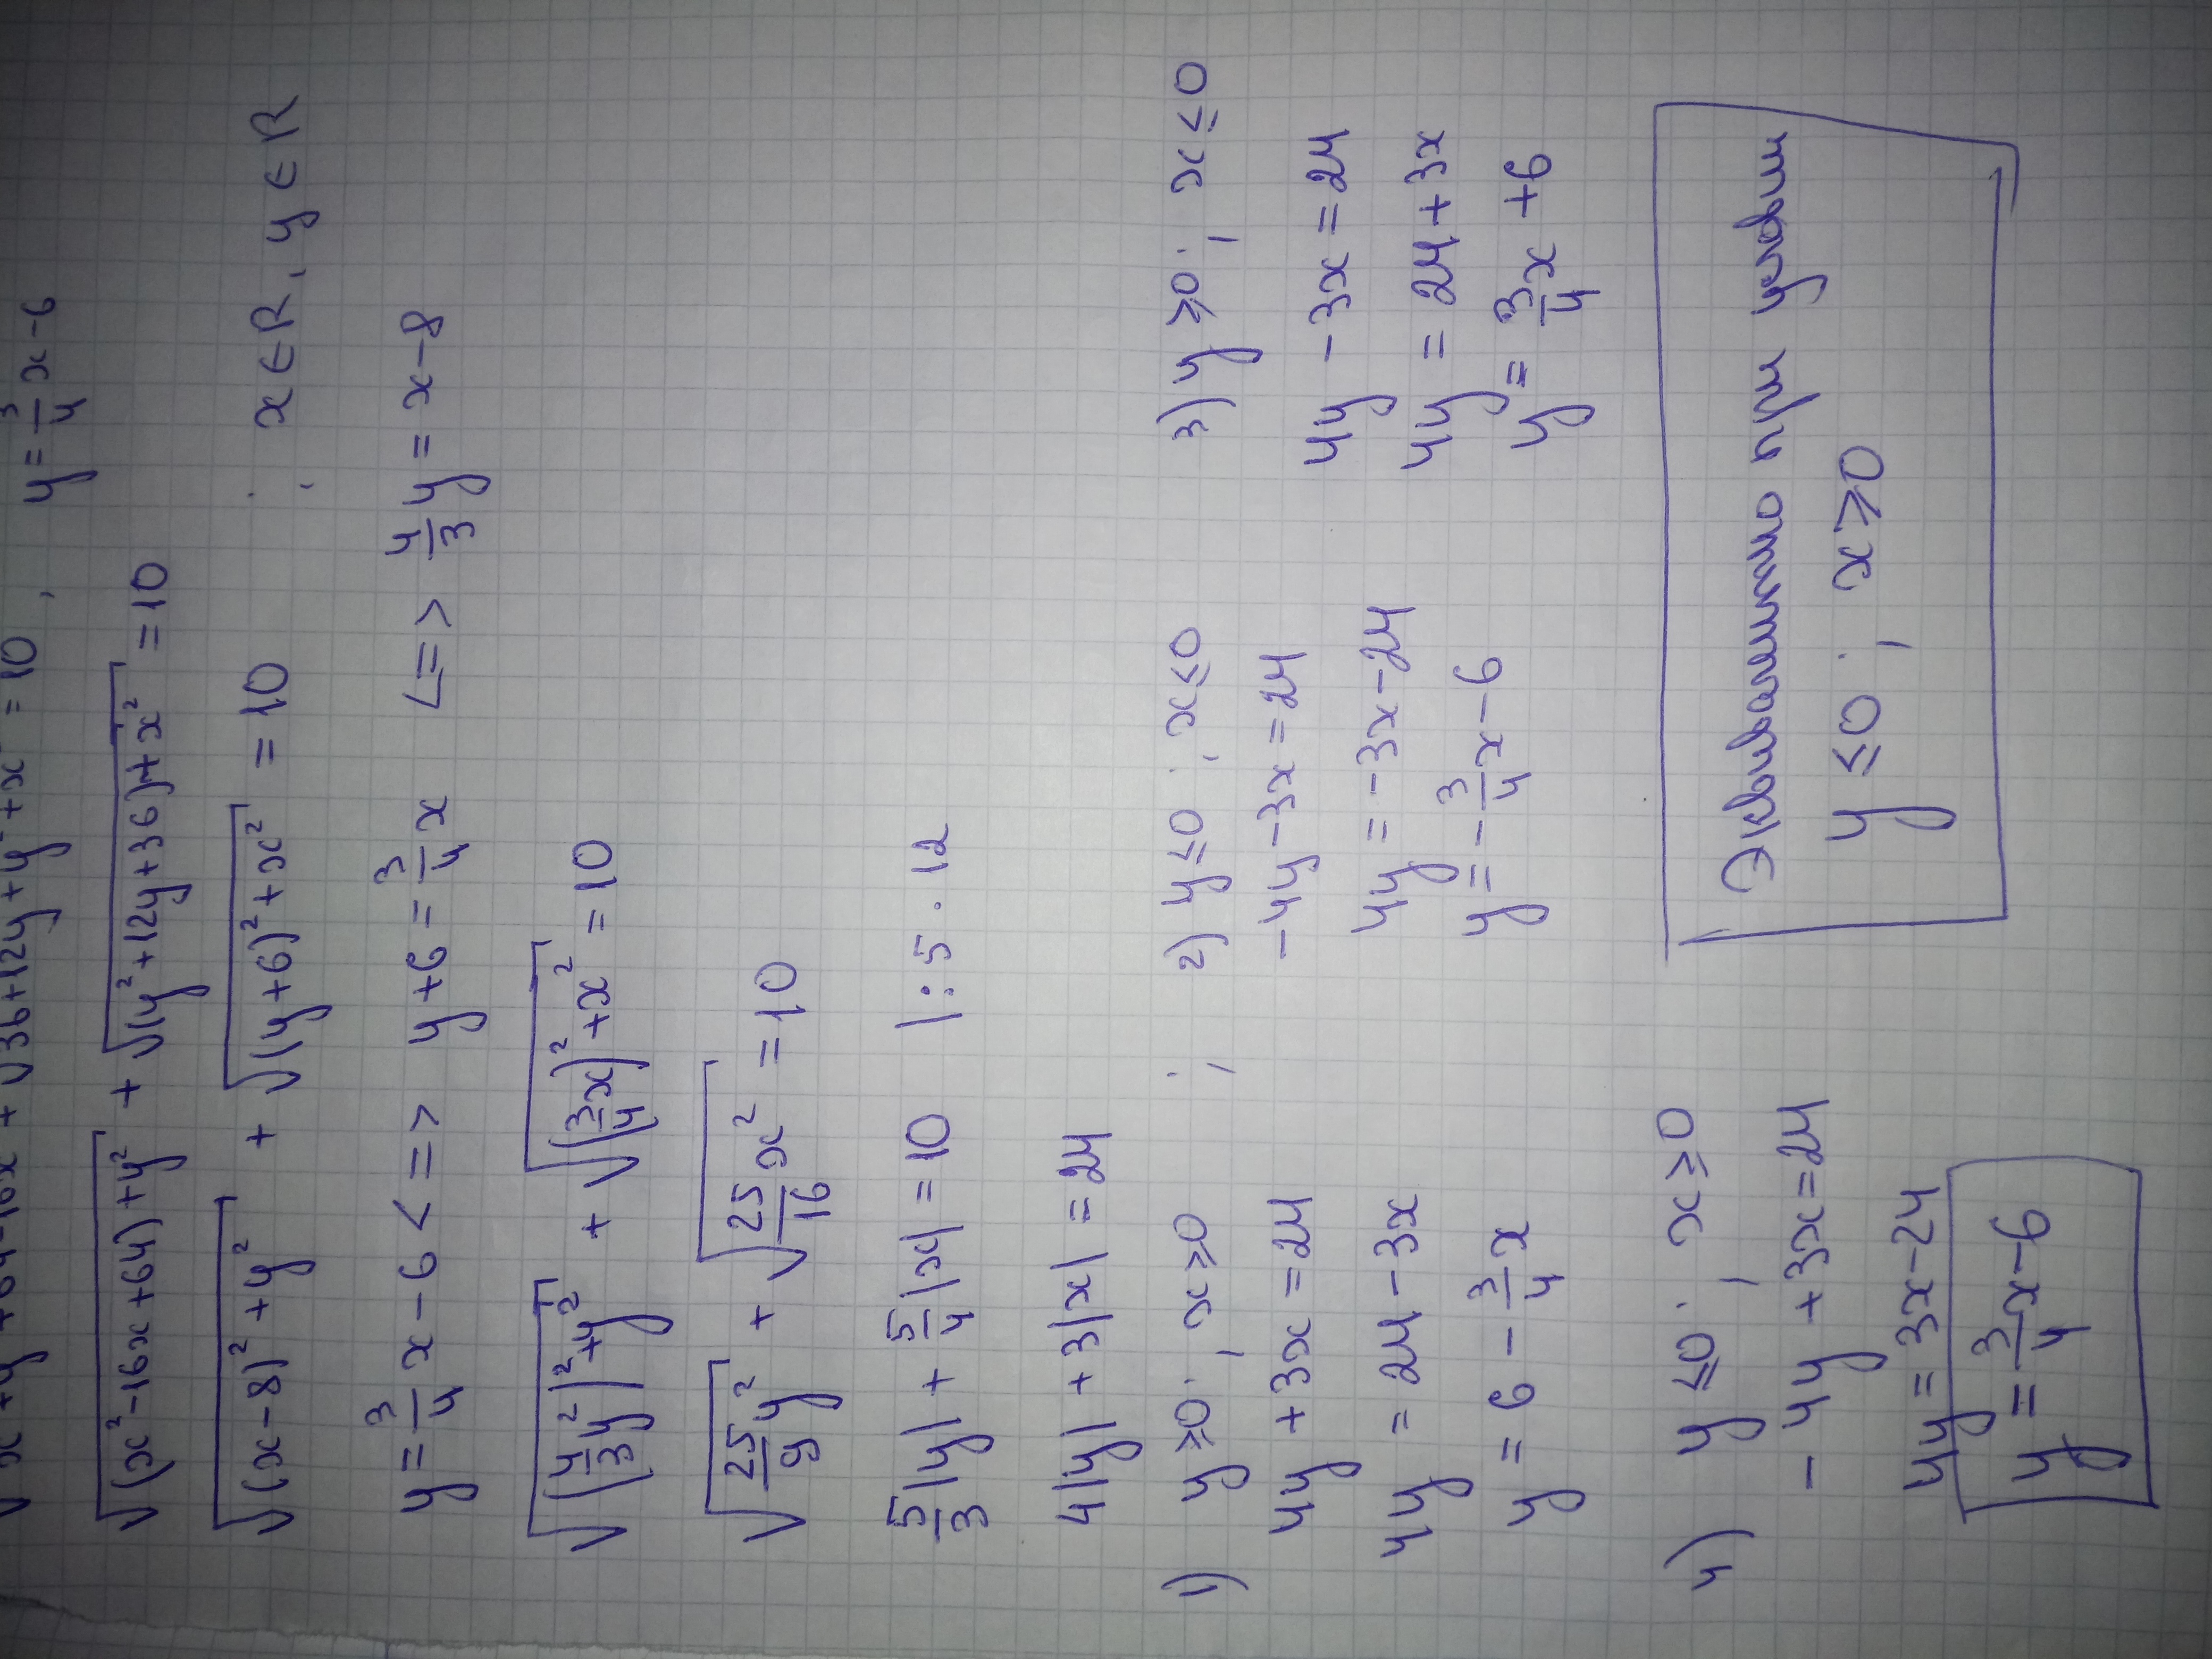 √x²+y²+64-16x + √36+12y+y²+x² = 10, y = 3/4 x - 6
√(x²-16x+64)+y² + √(y²+12y+36)+x² = 10
√(x-8)²+y² + √(y+6)²+x² = 10 ; x∈R, y∈R
y = 3/4 x - 6 <=> y+6 = 3/4 x <=> 4/3 y = x-8
√(4/3 y²)²+y² + √(3/4 x)²+x² = 10
√25/9 y² + √25/16 x² = 10
5/3 |y| + 5/4 |x| = 10 |:5·12
4|y| + 3|x| = 24 ;
1) y≥0; x≥0
4y + 3x = 24
4y = 24 - 3x
y = 6 - 3/4 x
2) y≤0; x≤0
-4y - 3x = 24
4y = -3x - 24
y = -3/4 x - 6
3) y≥0; x≤0
4y - 3x = 24
4y = 24 + 3x
y = 3/4 x + 6
4) y≤0; x≥0
-4y + 3x = 24
4y = 3x - 24
y = 3/4 x - 6
Эквивалентно при условии
y≤0; x≥0